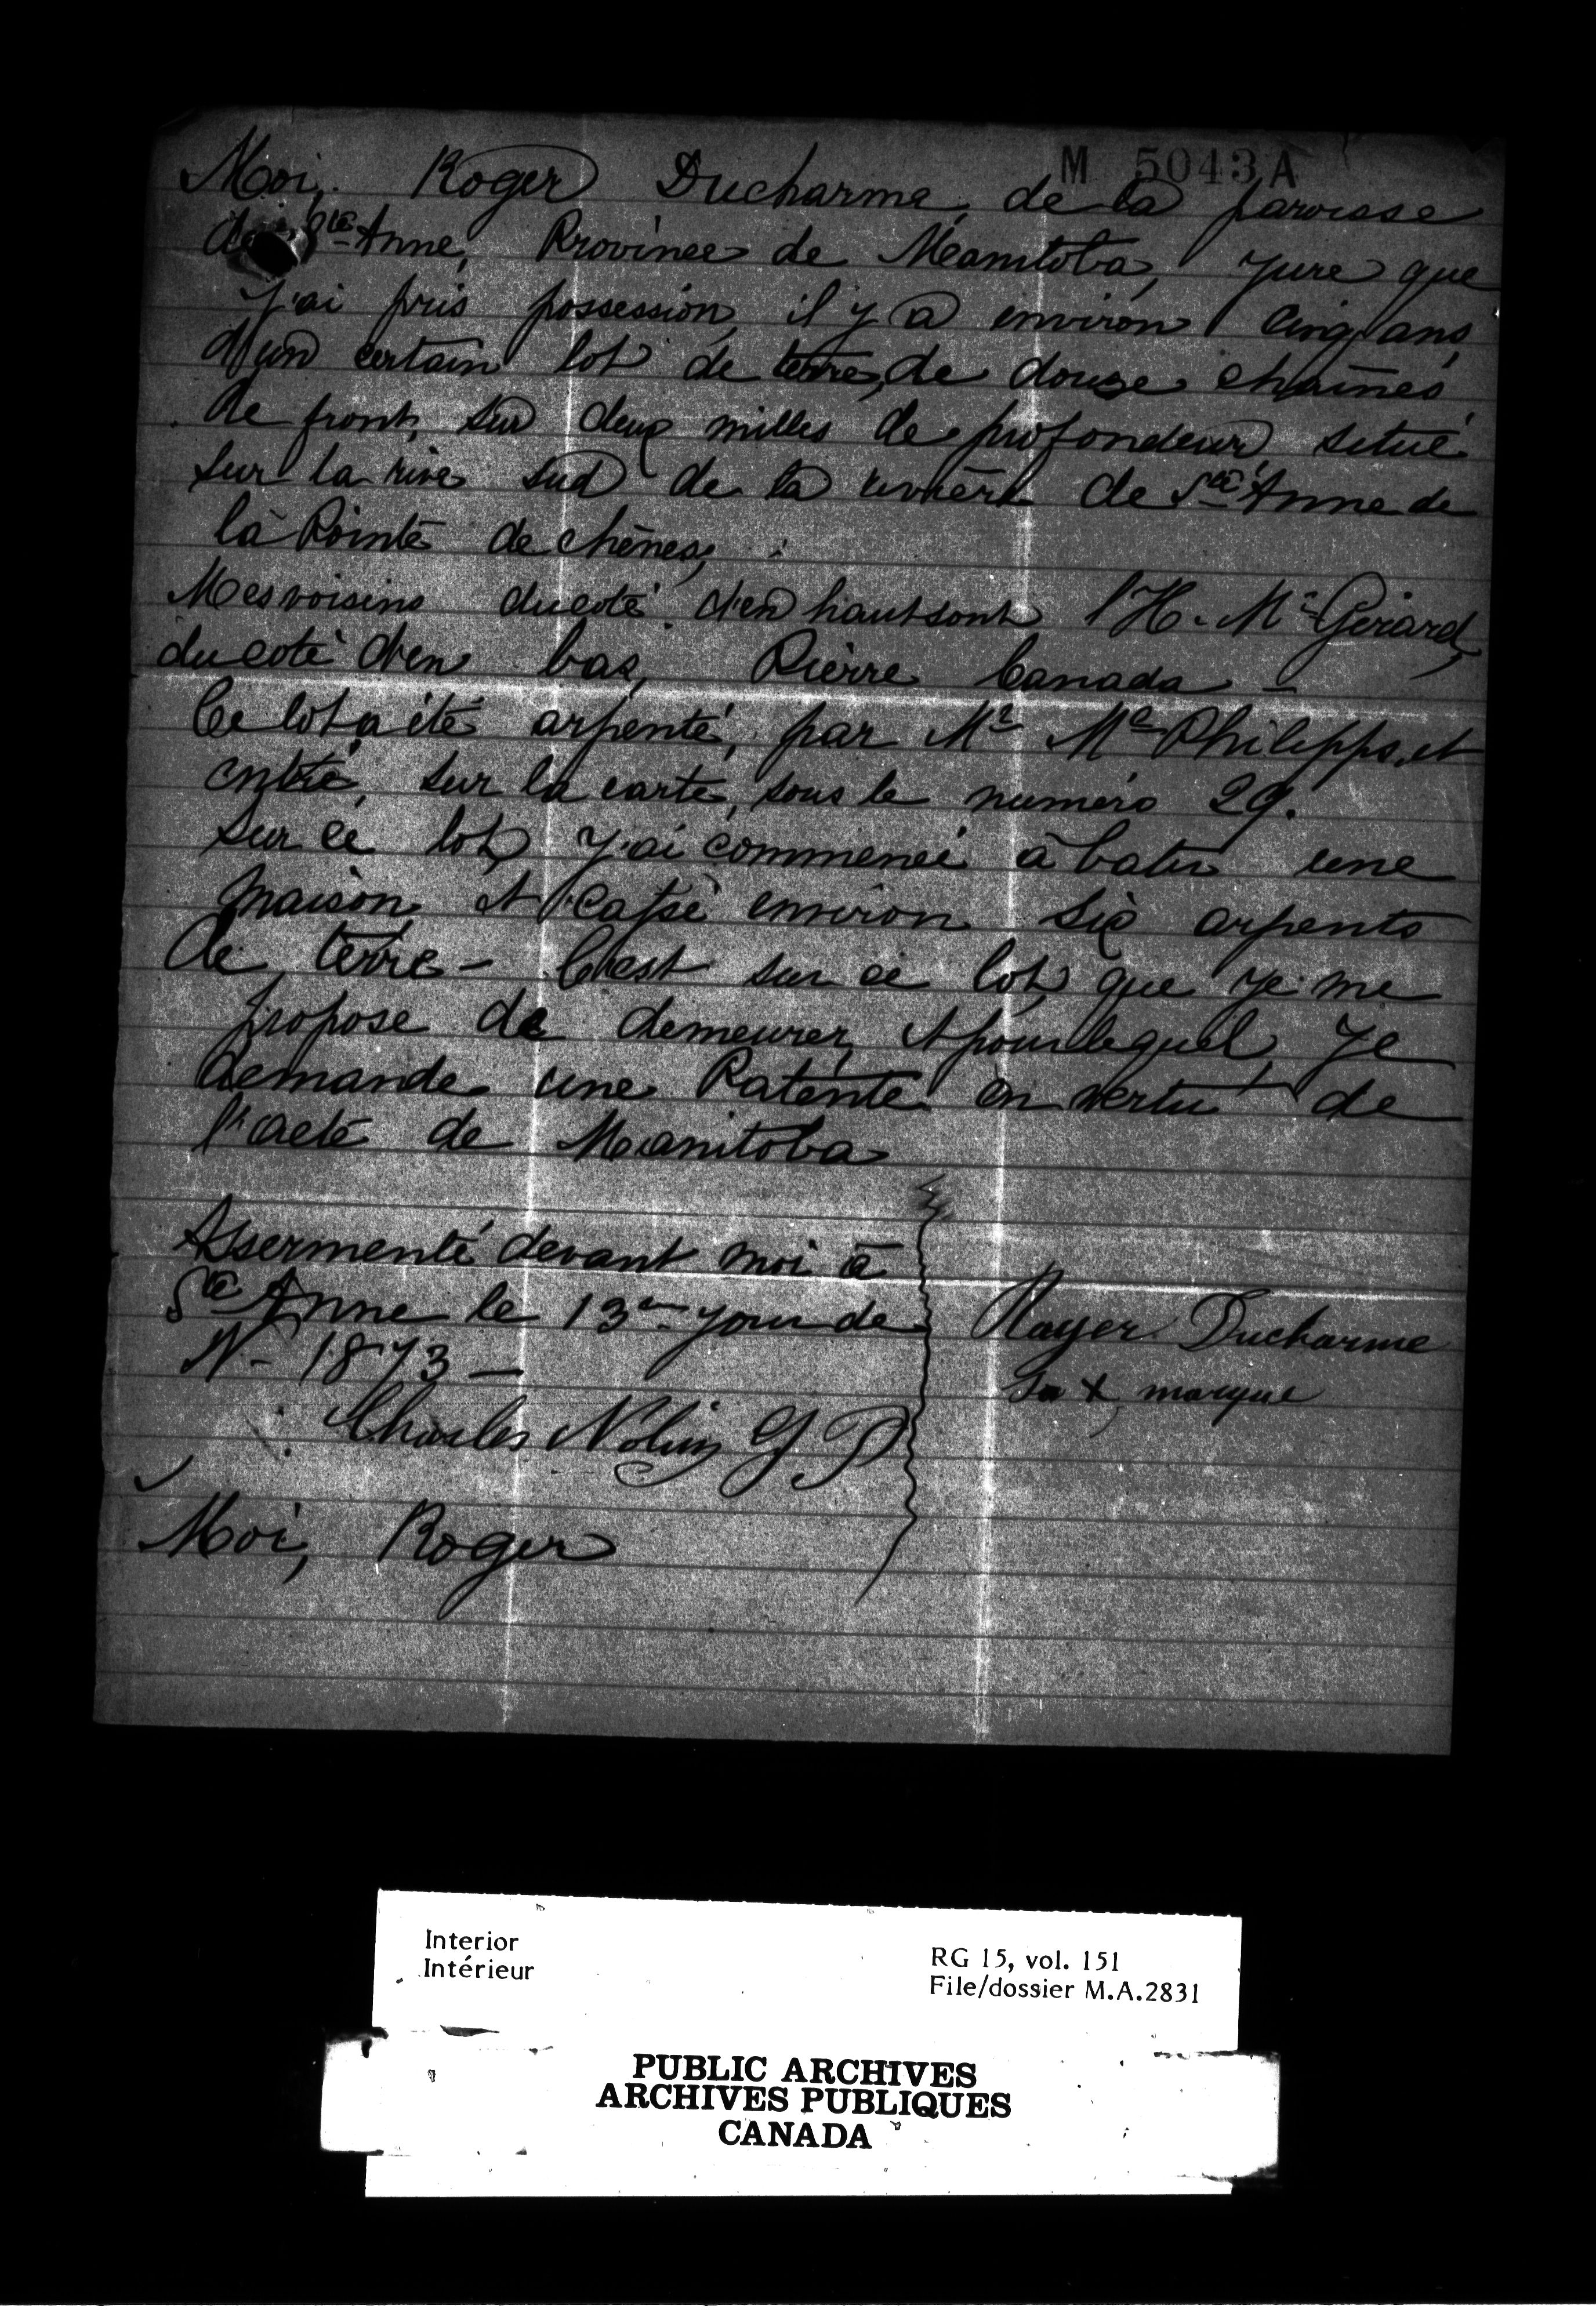 M 5043 A
Moi, Roger Ducharme, de la paroisse
de Ste Anne, Province de Manitoba, jure que
j'ai pris possession, il y a environ cinq ans,
d'un certain lot de terre, de douze chaînes
de front, sur deux milles de profondeur situé
sur la rive sud de la rivière de Ste Anne de
la Pointe de chênes,
Mes voisins du coté d'en haut sont l'H. Mr Girard,
du coté d'en bas, Pierre Canada -
Ce lot a été arpenté, par Mr Mc Philipps, et
entré, sur la carte, sous le numéro 29.
Sur ce lot, j'ai commencé à batir une
maison, et cassé environ six arpents
de terre - C'est sur ce lot, que je me
propose de demeurer, et pour lequel, je
demande une Patente en vertu de
l'acte de Manitoba
Assermenté devant moi à
Ste Anne le 13me jour de
N- 1873 -
Roger Ducharme
sa x marque
Charles Nolin J P
Moi, Roger
Interior
Intérieur
RG 15, vol. 151
File/dossier M.A.2831
PUBLIC ARCHIVES
ARCHIVES PUBLIQUES
CANADA